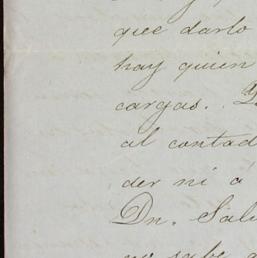 que darlo
hay quien
cargas.
al contad
der ni á
Dn. Salu
no sabe